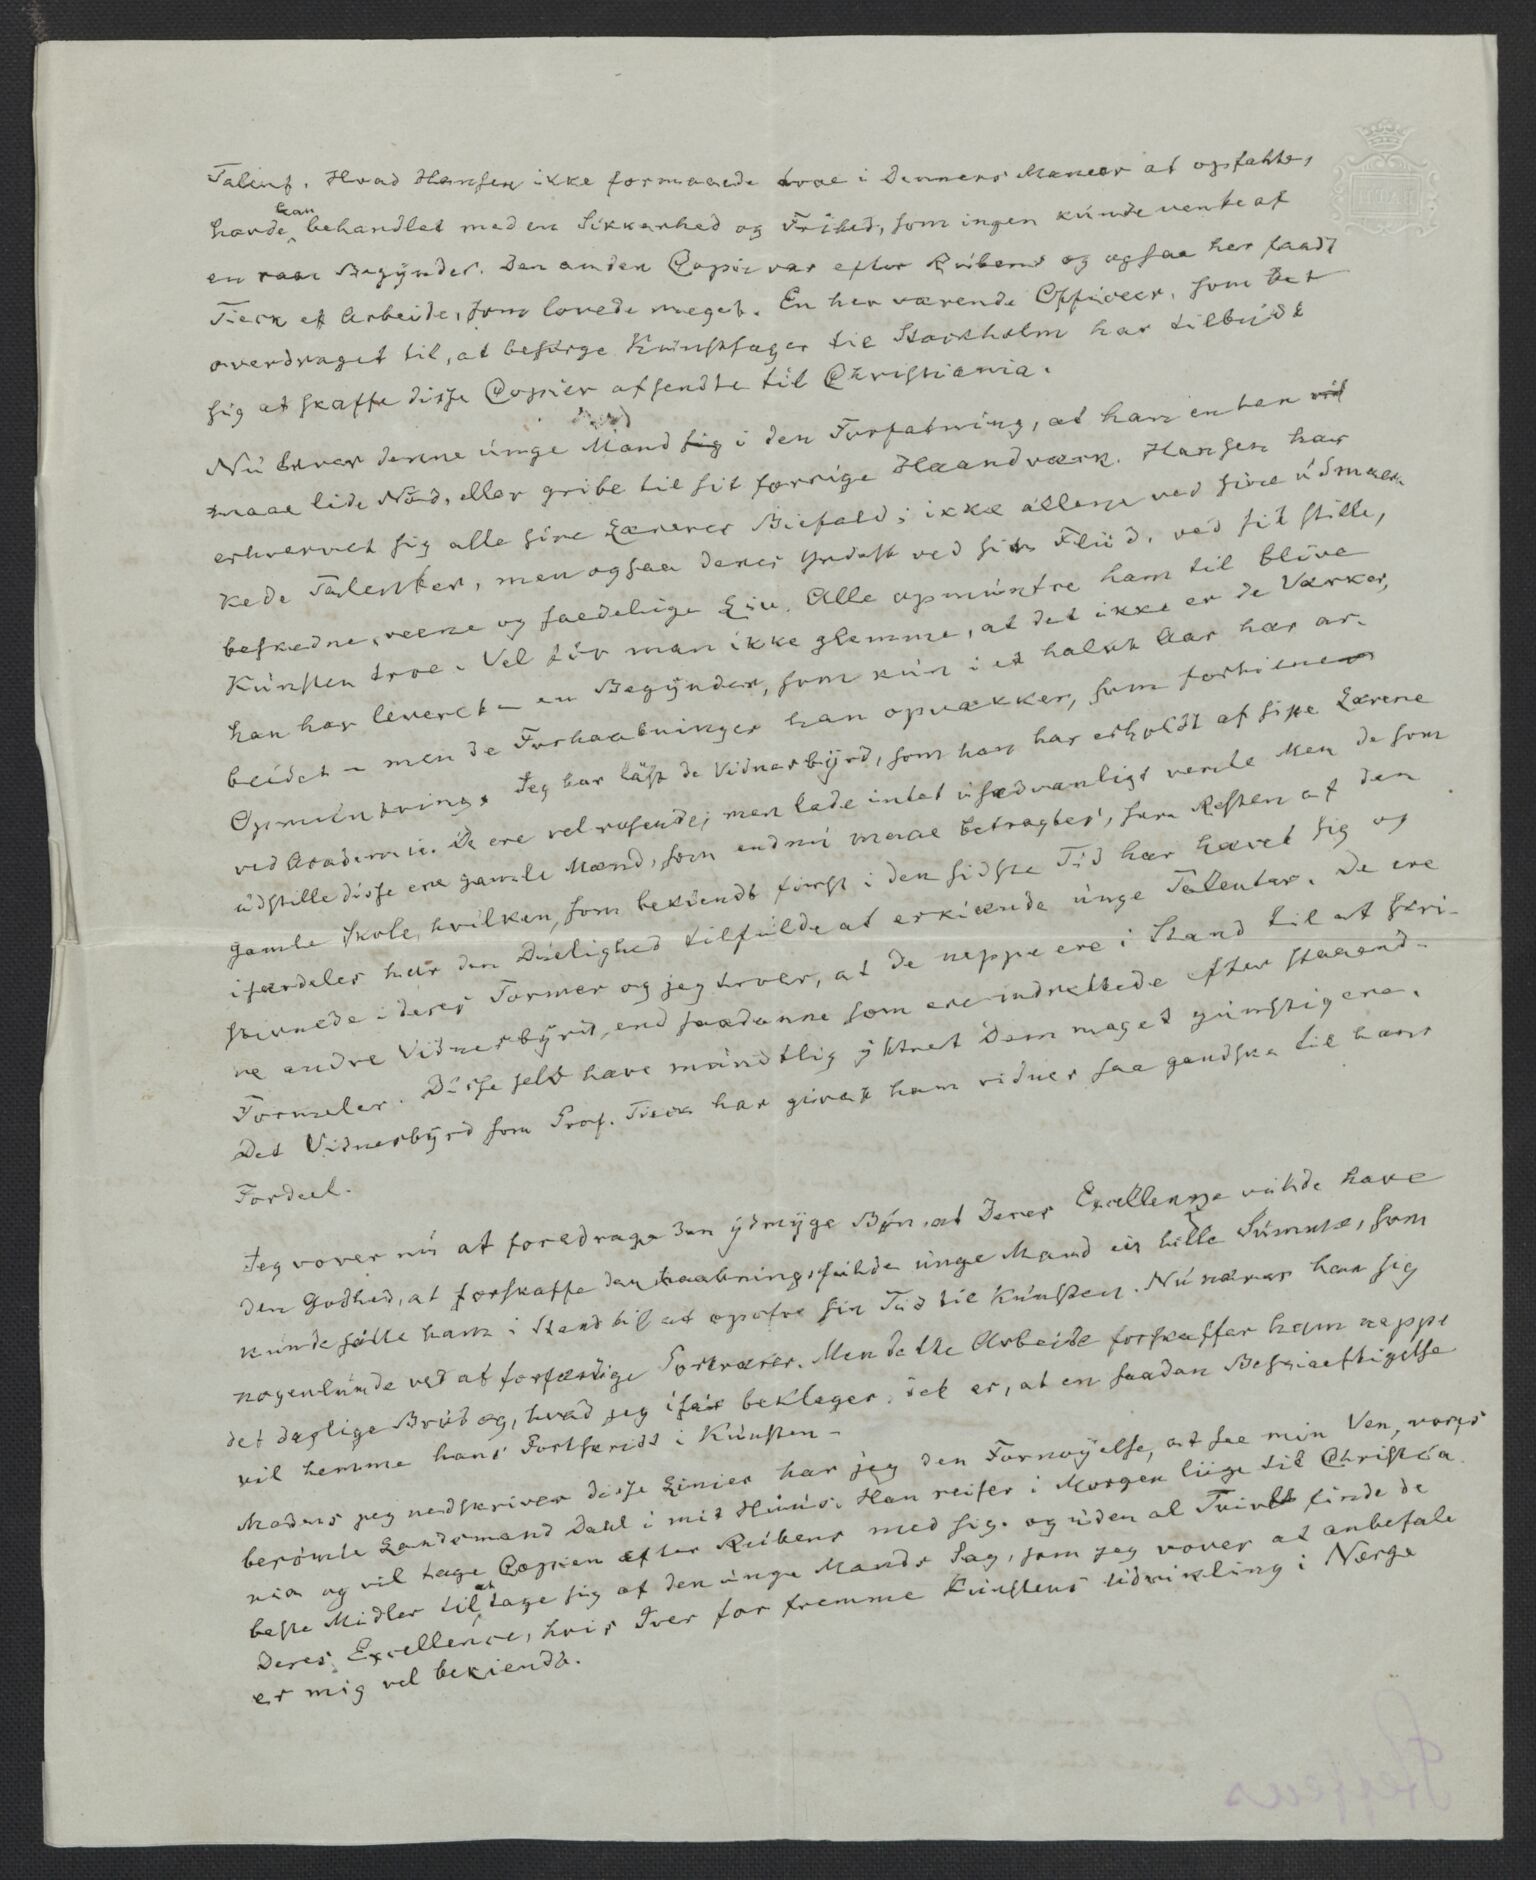 Talent. Hvad Hansen ikke formaaede troe i Denners Maneer at opfatte,
havde han behandlet med en Sikkerhed og Frihed, som ingen kunde vente af
en raae Begynder. Den anden Copie var efter Rubens og ogsaa her fandt
Tieck et Arbeide, som lovede meget. En her værende Officeer, som det
overdraget til, at besörge Kunstsager til Stockholm har tilbudt
sig at skaffe disse Copier afsendte til Christiania.
Nu er denne unge Mand i den Forfatning, at han enten
maae lide Nöd, eller gribe til sit forrige Haandværk. Hansen har
erhvervet sig alle sine Læreres Biefald; ikke allene ved sine udmær-
kede Talenter, men ogsaa deres Yndest ved sin Fliid, ved sit stille,
beskedne, reene og saedelige Liv. Alle opmuntre ham til blive
Kunsten troe. Vel tör man ikke glemme, at det ikke er de Værker,
han har leveret – en Begynder, som kun i et halvt Aar har ar-
beidet – men de Forhaabninger han opvækker, som fortiener
Opmuntring. Jeg har läst de Vidnesbyrd, som han har erholdt af sine Lærere
ved Academie. De ere vel rosende; men lade intet usædvanligt vente Men de som
udstille disse ere gamle Mænd, som endnu maae betragtes, som Resten af den
gamle Skole, hvilken, som bekiendt först i den sidste Tid har hævet sig og
isærdeles har den Duelighed tilfulde at erkiænde unge Talenter. De ere
stivnede i deres Former og jeg troer, at de neppe ere i Stand til at skri-
ve andre Vidnesbyrd, end saadanne som ere indrettede efter staaend-
Formeler. Disse selv have mundtlig yttret dem meget gunstigere.
Det Vidnesbyrd som Prof. Tieck har givet ham vidner saa gandske til hans
Fordeel.
Jeg vover nu at foredrage den ydmyge Bön, at Deres Excellense vilde have
den Godhed, at forskaffe den haabningsfulde unge Mand en lille Summe, som
kunde sätte ham i Stand til at opofre sin Tid til Kunsten. Nu nærer han sig
nogenlunde ved at forfærdige Portræter. Men dette Arbeide forskaffer ham neppe
det daglige Bröd og, hvad jeg især beklager, det er, at en saadan Beskiaeftigelse
vil hemme hans Fortskridt i Kunsten –
Medens jeg nedskriver disse Linier har jeg den Fornöyelse, at see min Ven, vores
berömte Landsmand Dahl i mit Huus. Han reiser i Morgen liige til Christia
nia og vil tage Copien efter Rubens med sig. og uden al Tvivl finde de
beste Midler til at tage sig af den unge Mands Sag, som jeg vover at anbefale
Deres Excellence, hvis Iver for fremme Kunstens Udvikling i Norge
er mig vel bekiendt.